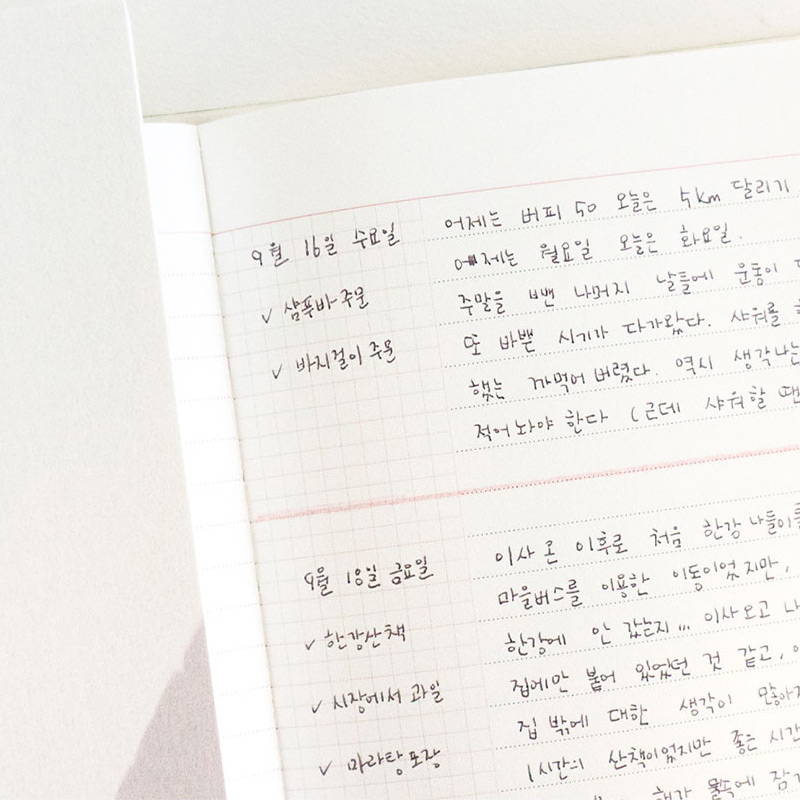 9월 16일 수요일
✓ 샴푸바 주문
✓ 바지걸이 주문
어제는 버피 50 오늘은 5km 달리기
어제는 월요일 오늘은 화요일.
주말을 뺀 나머지 날들에 운동이
또 바쁜 시기가 다가왔다. 샤워를
했는 까먹어버렸다. 역시 생각나는
적어놔야 한다 (근데 샤워할 땐
9월 18일 금요일
✓ 한강산책
✓ 시장에서 과일
✓ 마라탕 포장
이사 온 이후로 처음 한강 나들이를
마을버스를 이용한 이동이었지만,
한강에 안 갔는지... 이사오고 나
집에만 붙어 있었던 것 같고,
집 밖에 대한 생각이 많아
1시간의 산책이었지만 좋은 시간
해가 물속에 잠기